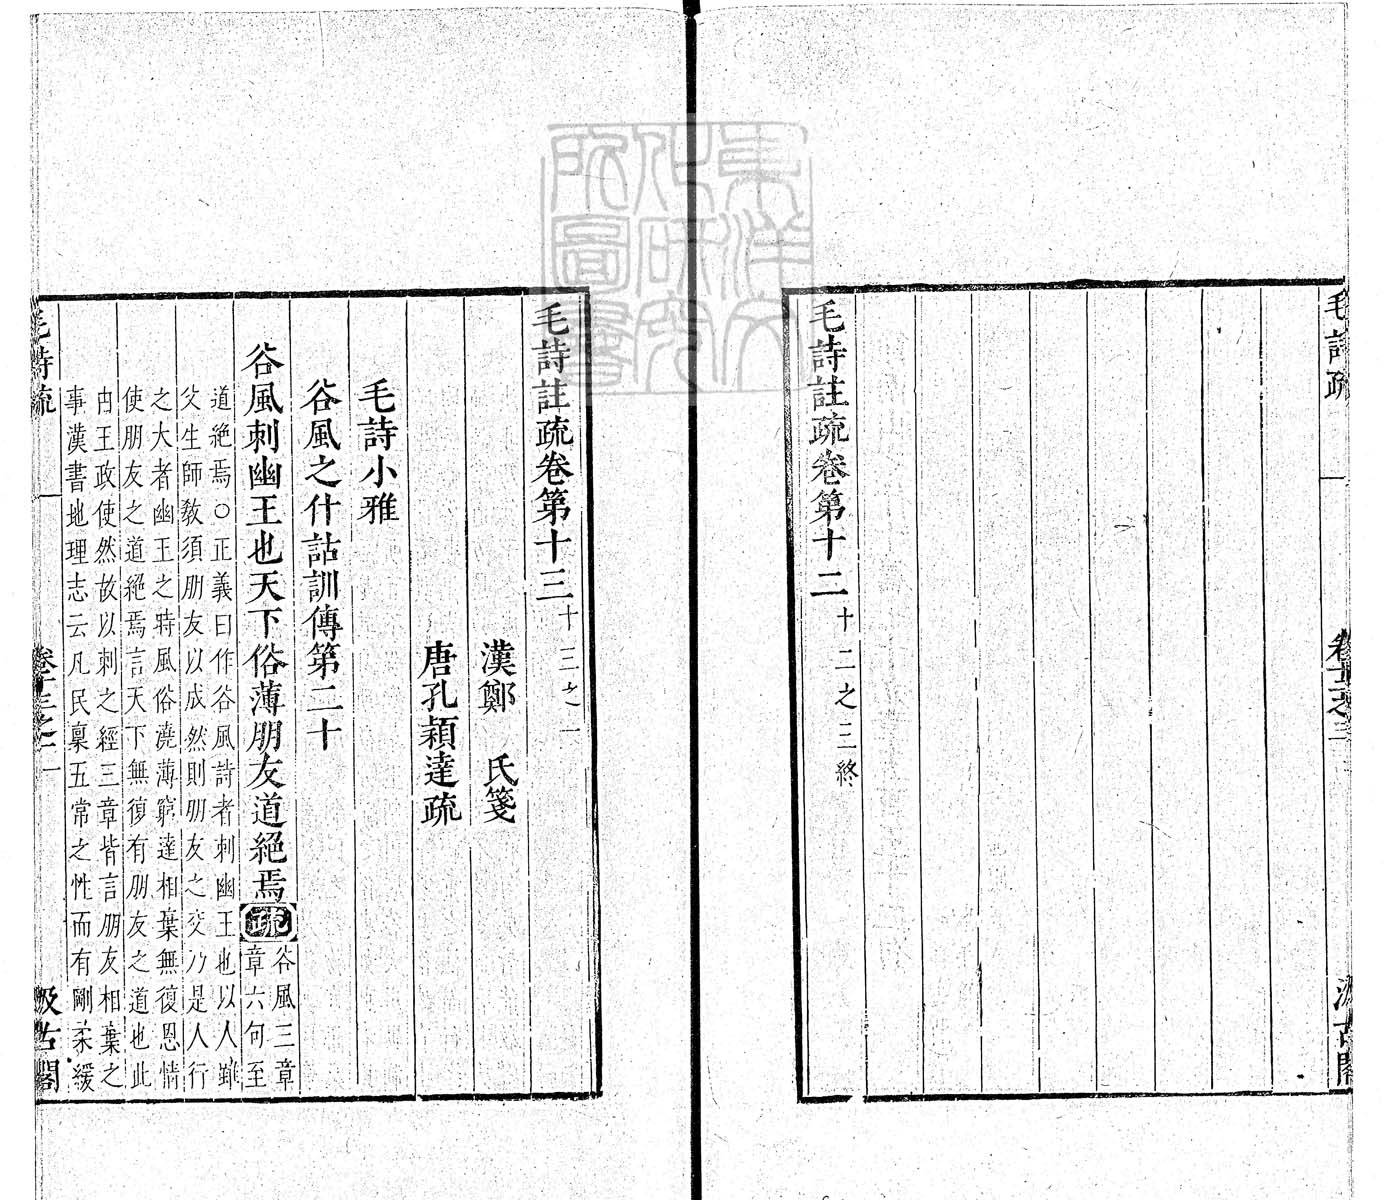 毛詩疏
卷十二之三
汲古閣
毛詩註疏卷第十二
十二之三終
東洋文
化研究
所圖書
毛詩註疏卷第十三
十三之一
漢鄭 氏箋
唐孔穎達疏
毛詩小雅
谷風之什詁訓傳第二十
谷風刺幽王也天下俗薄朋友道絕焉疏
谷風三章
章六句至
道絕焉○正義曰作谷風詩者刺幽王也以人雖
父生師教須朋友以成然則朋友之交乃是人行
之大者幽王之時風俗澆薄窮達相棄無復恩情
使朋友之道絕焉言天下無復有朋友之道也此
由王政使然故以刺之經三章皆言朋友相棄之
事漢書地理志云凡民稟五常之性而有剛柔緩
毛詩疏
卷十三之一
一
汲古閣